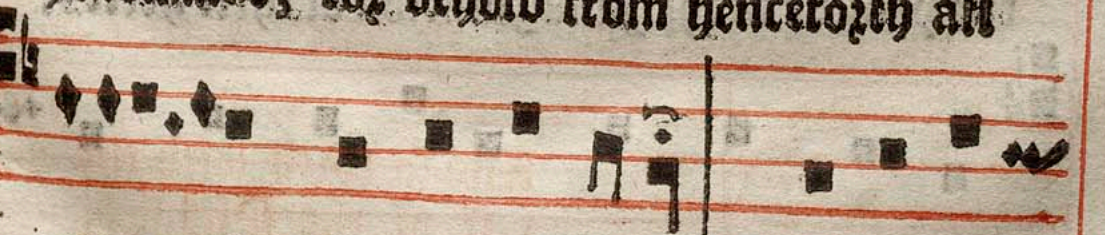 for behold from henceforth all